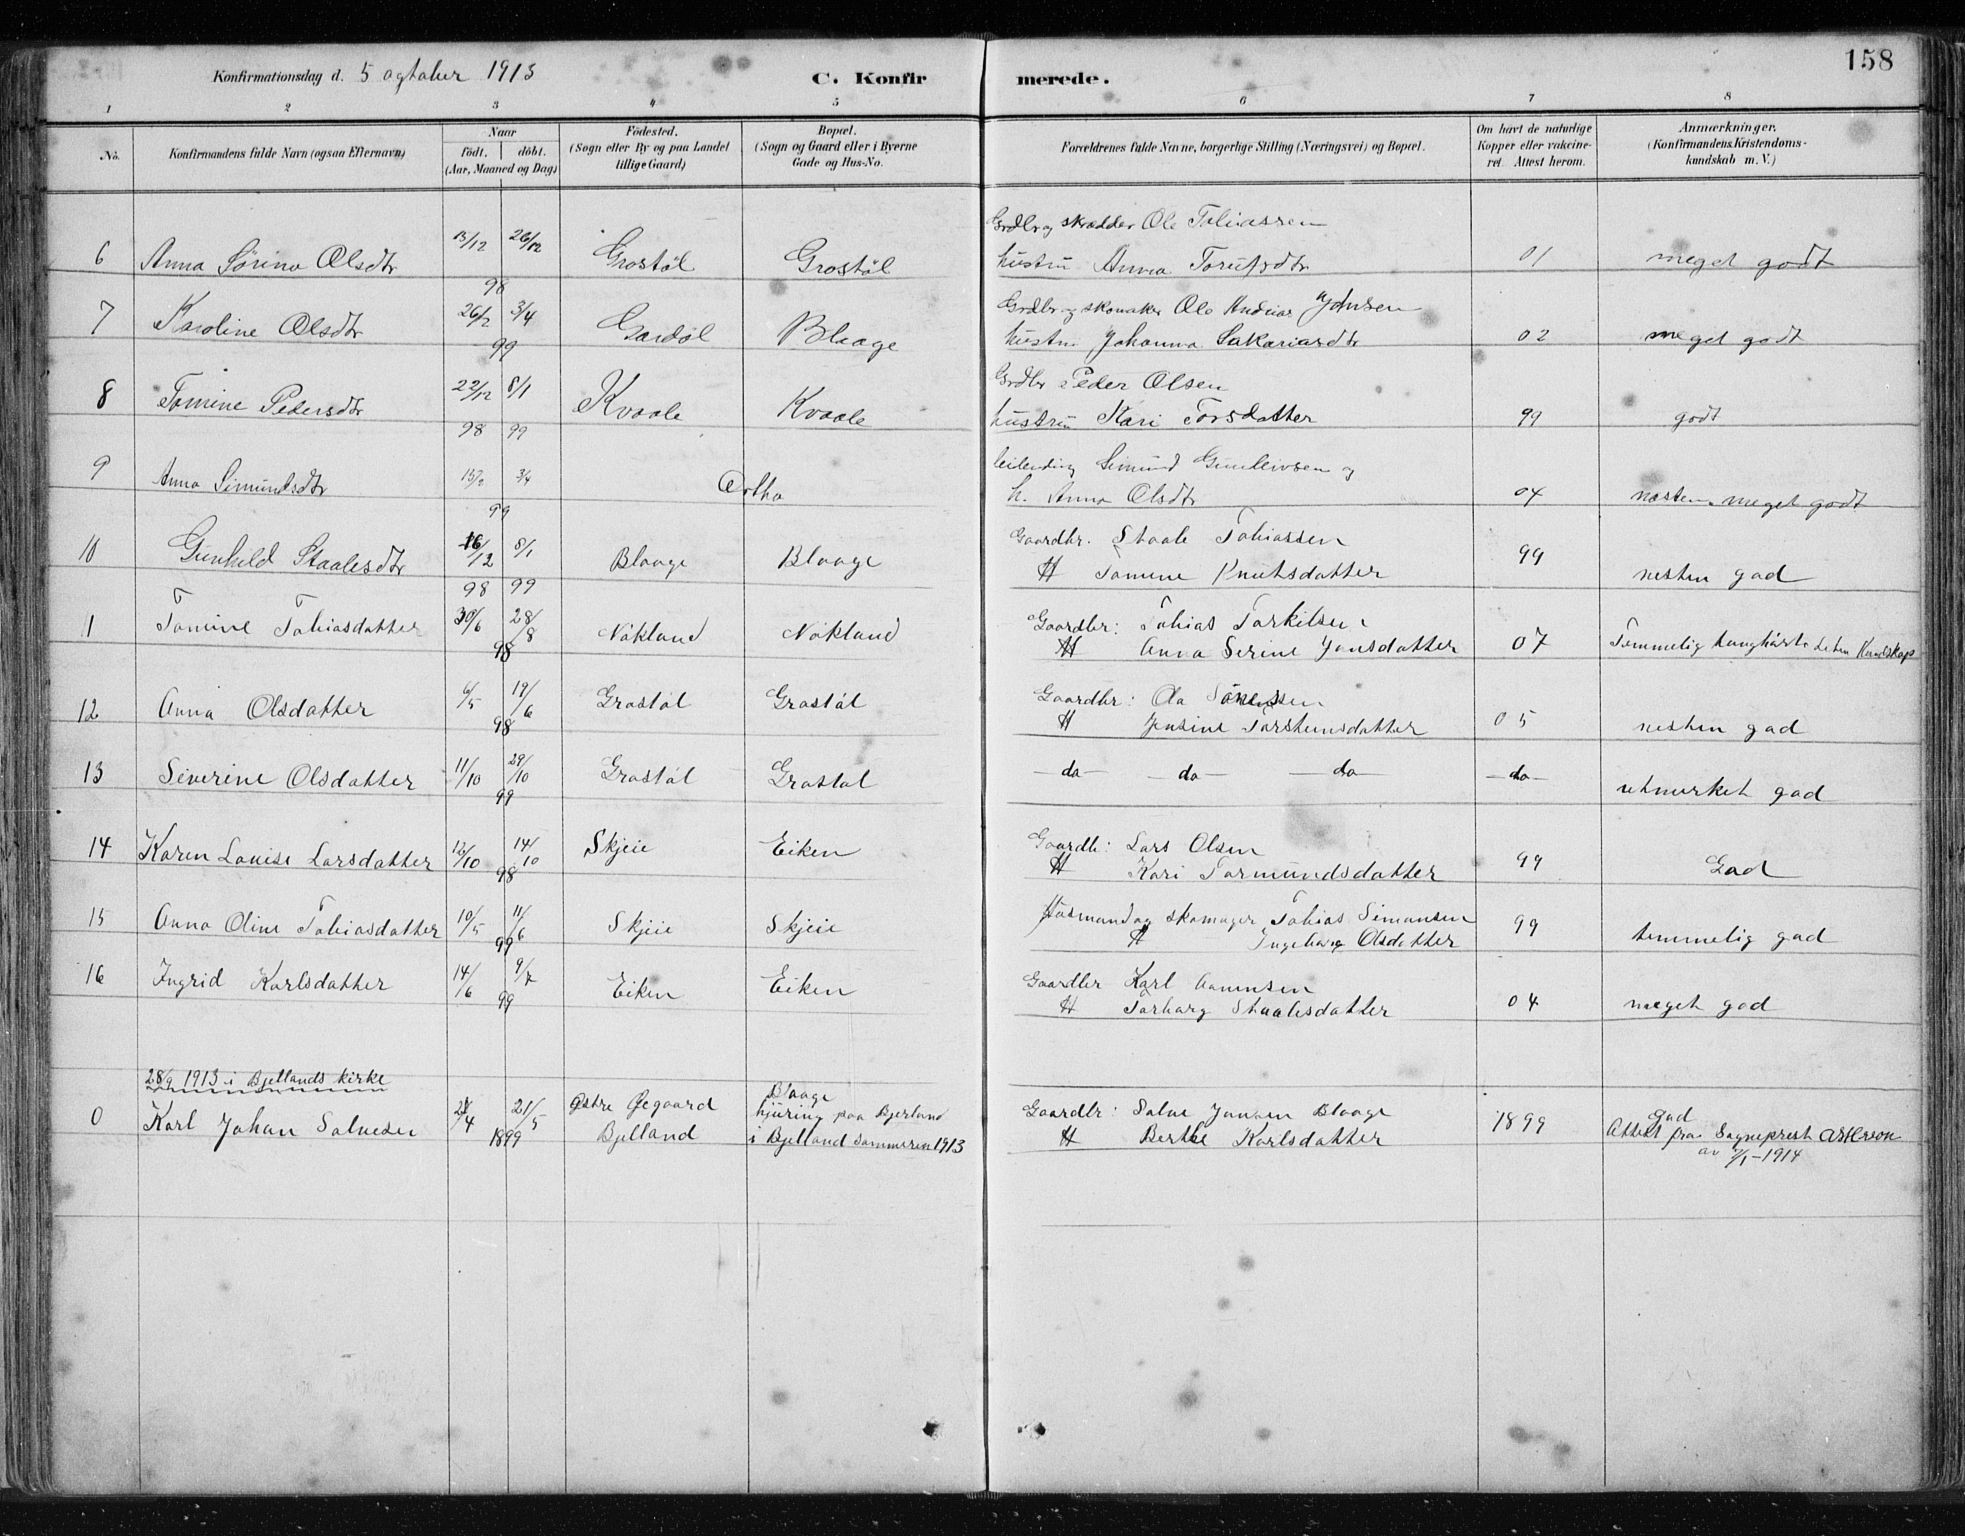 158
Konfirmationsdag d. 5 ogtober 1913
C. Konfirmerede.
1 2 3 4 5 6 7 8
No. Konfirmandens fulde Navn (ogsaa Efternavn)
Naar født. døbt. (Aar, Maaned og Dag)
Fødested. (Sogn eller By og paa Landet tillige Gaard)
Bopæl. (Sogn og Gaard eller i Byerne Gade og Hus-No.
Forældrenes fulde Navne, borgerlige Stilling (Næringsvei) og Bopæl.
Om havt de naturlige Kopper eller vakcineret. Attest herom.
Anmærkninger. (Konfirmandens Kristendomskundskab m. V.)
Grdbr og skrædder Ole Tobiassen
6 Anna Sørina Olsdtr 13/12 26/12 98 Grostøl Grostøl hustru Anna 01 meget godt
Grdbr og skomaker Ole Andreas Johnsen
7 Karoline Olsdtr 26/2 3/4 99 Gardøl Blaage hustru Johanna Sakariasdtr 02 meget godt
Grdbr Peder Olsen
8 Tomine Pedersdtr 22/12 8/1 98 99 Kvaale Kvaale hustru Kari Torsdatter 99 godt
leilending Simund Gunleivsen og
9 Anna Simundsdtr 15/2 3/4 99 h. Anna Olsdtr 04 næsten meget godt
Gaardbr. Staale Tobiassen
10 Gunhild Staalesdtr 16/12 8/1 98 99 Blaage Blaage H Tomine Knutsdatter 99 nesten god
Gaardbr: Tobias Torkilsen
11 Tomine Tobiasdatter 30/6 28/8 98 Nökland Nökland H Anna Serine Jonsdatter 07 Temmelig tunghørt liten Kundskap
Gaardbr: Ola Sörensen
12 Anna Olsdatter 6/5 19/6 98 Grostøl Grostøl H Jensine Torsteinsdatter 05 nesten god
13 Severine Olsdatter 11/10 29/10 99 Grostøl Grostøl – do – – do – – do – – do – utmerket god
Gaardb: Lars Olsen
14 Karen Louise Larsdatter 12/10 14/10 98 Skjeie Eiken H Kari Tormundsdatter 99 God
Husmand og skomager Tobias Simonsen
15 Anna Oline Tobiasdatter 10/5 11/6 99 Skjeie Skjeie H Ingeborg Olsdatter 99 temmelig god
Gaardbr Karl Aanensen
16 Ingrid Karlsdatter 14/6 9/7 99 Eiken Eiken H Torborg Staalesdatter 04 meget god
28/9 1913 i Bjellands kirke
0 Karl Johan Salvesen 21/5 1899 Østre Øegaard Bjelland
Blaage hjuring paa Bjerland i Bjelland sommeren 1913
Gaardbr: Salve Jensen Blaage
H Berthe Karlsdatter 1899 God
Attest fra Sogneprest
av 1914